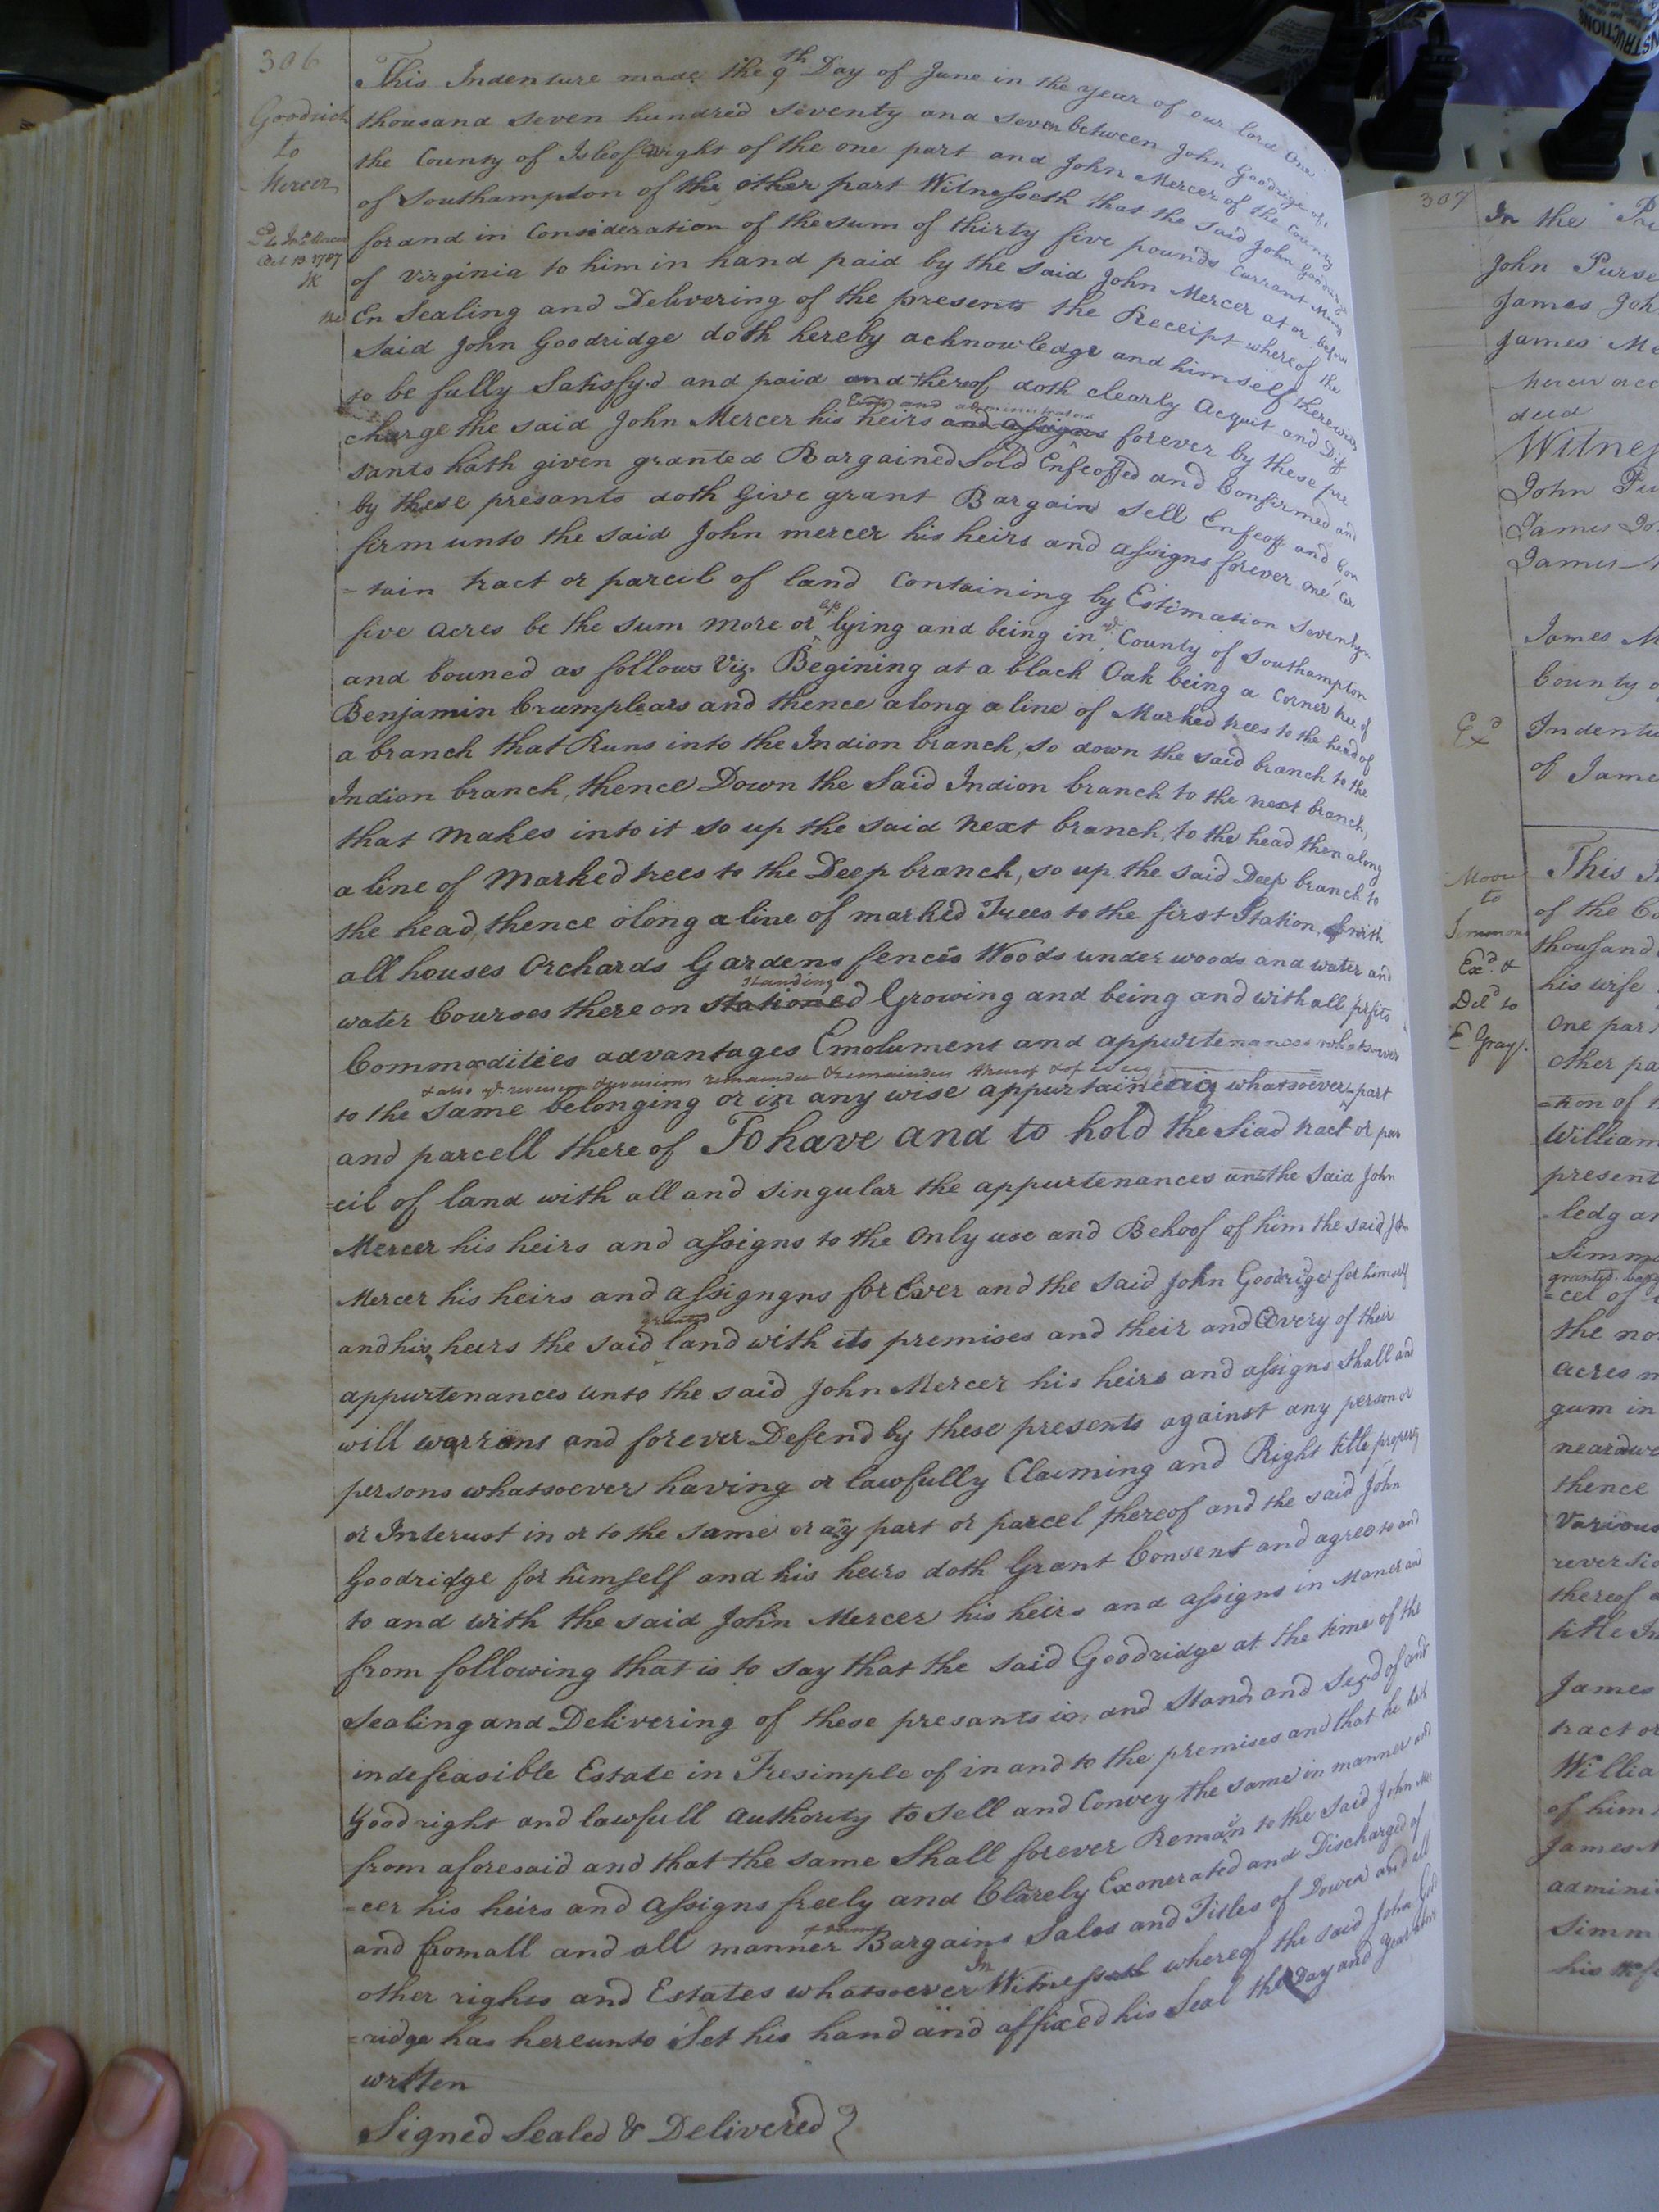 306
Goodrich
to
Mercer
Oct 13 1787
This Indenture made the 9th Day of June in the year of our lord One
thousand seven hundred seventy and seven between John Goodrige of
the County of Isle of Wight of the one part and John Mercer of the County
of Southampton of the other part Witnesseth that the said John Goodridge
for and in Consideration of the sum of thirty five pounds Currant Money
of Virginia to him in hand paid by the said John Mercer at or before
the En Sealing and Delivering of the presents the Receipt whereof the
said John Goodridge doth hereby acknowledge and himself therewith
to be fully Satisfy'd and paid and thereof doth clearly Acquit and Dis
charge the said John Mercer his heirs Exrs and administrators and assigns forever by these pre
sants hath given granted Bargained Sold Enfeoffed and Confirmed and
by these presants doth Give grant Bargain Sell Enfeoff and Con
firm unto the said John mercer his heirs and assigns forever one Cer
=tain tract or parcil of land Containing by Estimation seventy
five acres be the sum more or less lying and being in ye County of Southampton
and bouned as follows Viz. Begining at a black Oak being a Corner tree of
Benjamin Crumplears and thence along a line of Marked trees to the head of
a branch that Runs into the Indion branch, so down the said branch to the
Indion branch, thence Down the Said Indion branch to the next branch,
that makes into it so up the said next branch, to the head then along
a line of Marked trees to the Deep branch, so up the said Deep branch to
the head, thence along a line of marked Trees to the first Station, with
all houses Orchards Gardens fences Woods under woods and water and
water Courses there on standing stationed Growing and being and with all prfits
Commodities advantages Emolument and appurtenances whatsoever
& also ye reversion & reversions remainder & remainders thereof & of every
to the same belonging or in any wise appurtaineing whatsoever part
and parcell there of To have and to hold the Siad tract or par
=cil of land with all and singular the appurtenances unto the Said John
Mercer his heirs and assigns to the only use and Behoof of him the said John
Mercer his heirs and assigngns for Ever and the said John Goodridge for himself
and his heirs the said granted land with its premises and their and Every of their
appurtenances unto the said John Mercer his heirs and assigns shall and
will warrant and forever Defend by these presents against any person or
persons whatsoever having or lawfully Claiming and Right title property
or Interust in or to the same or any part or parcel thereof and the said John
Goodridge for himself and his heirs doth Grant Consent and agree to and
to and with the said John Mercer his heirs and assigns in Maner and
from following that is to say that the said Goodridge at the time of the
Sealing and Delivering of these presants is and Stands and Sez'd of and
indefeasible Estate in Fresimple of in and to the premises and that he hath
Good right and lawfull Authority to Sell and Convey the same in manner and
from aforesaid and that the same Shall forever Remain to the said John Mer
=cer his heirs and assigns freely and Clarely Exonerated and Discharged of
and from all and all manner Bargains Sales and Titles of Dower and all
other rights and Estates whatsoever In Witness whereof the said John Good
=ridge has hereunto Set his hand and affixed his Seal the Day and Year above
written
Signed Sealed & Delivered
307
In the
John Purse
James Joh
James
deed
Witness
John
James
James
James M
County
Exd
Indentu
of Jame
Moore
to
Simmons
Exd. &
Deld to
E Gray.
This
of the Co
thousand
his wife
one part
other pa
=tion of
William
present
ledg an
Simm
granted
=cel of
the no
acres m
gum in
near
thence
various
reversio
thereof
title In
James
tract or
Willia
of him
James
admini
Simm
his